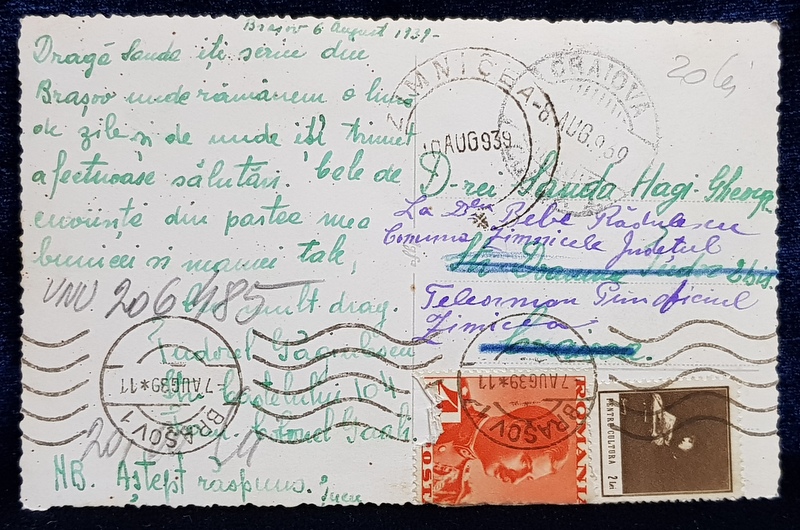 Brașov 6 August 1939-
Dragă Sanda iți scriu din
Brașov unde rămânem o lună
de zile și de unde iți trimet
afectuoase sălutări. Cele de
cuviință din partea mea
bunicei și mamei tale,
Cu mult drag.
Tudorel
Str. Castelului 104
Colonel
NB. Aștept raspuns.
VNV 206485
20 lei
ZIMNICEA
AUG939
CRAIOVA
-8 AUG.939
D-rei Sanda Hagi Gheorg
La Dl Bebe Rădulescu
Comuna Zimnicele Județul
Teleorman Prin oficiul
Zimicea
BRAȘOV 1
-7AUG39*11
BRAȘOV 1
-7AUG39*11
ROMANIA
POST
PENTRU CULTURA
2 Lei